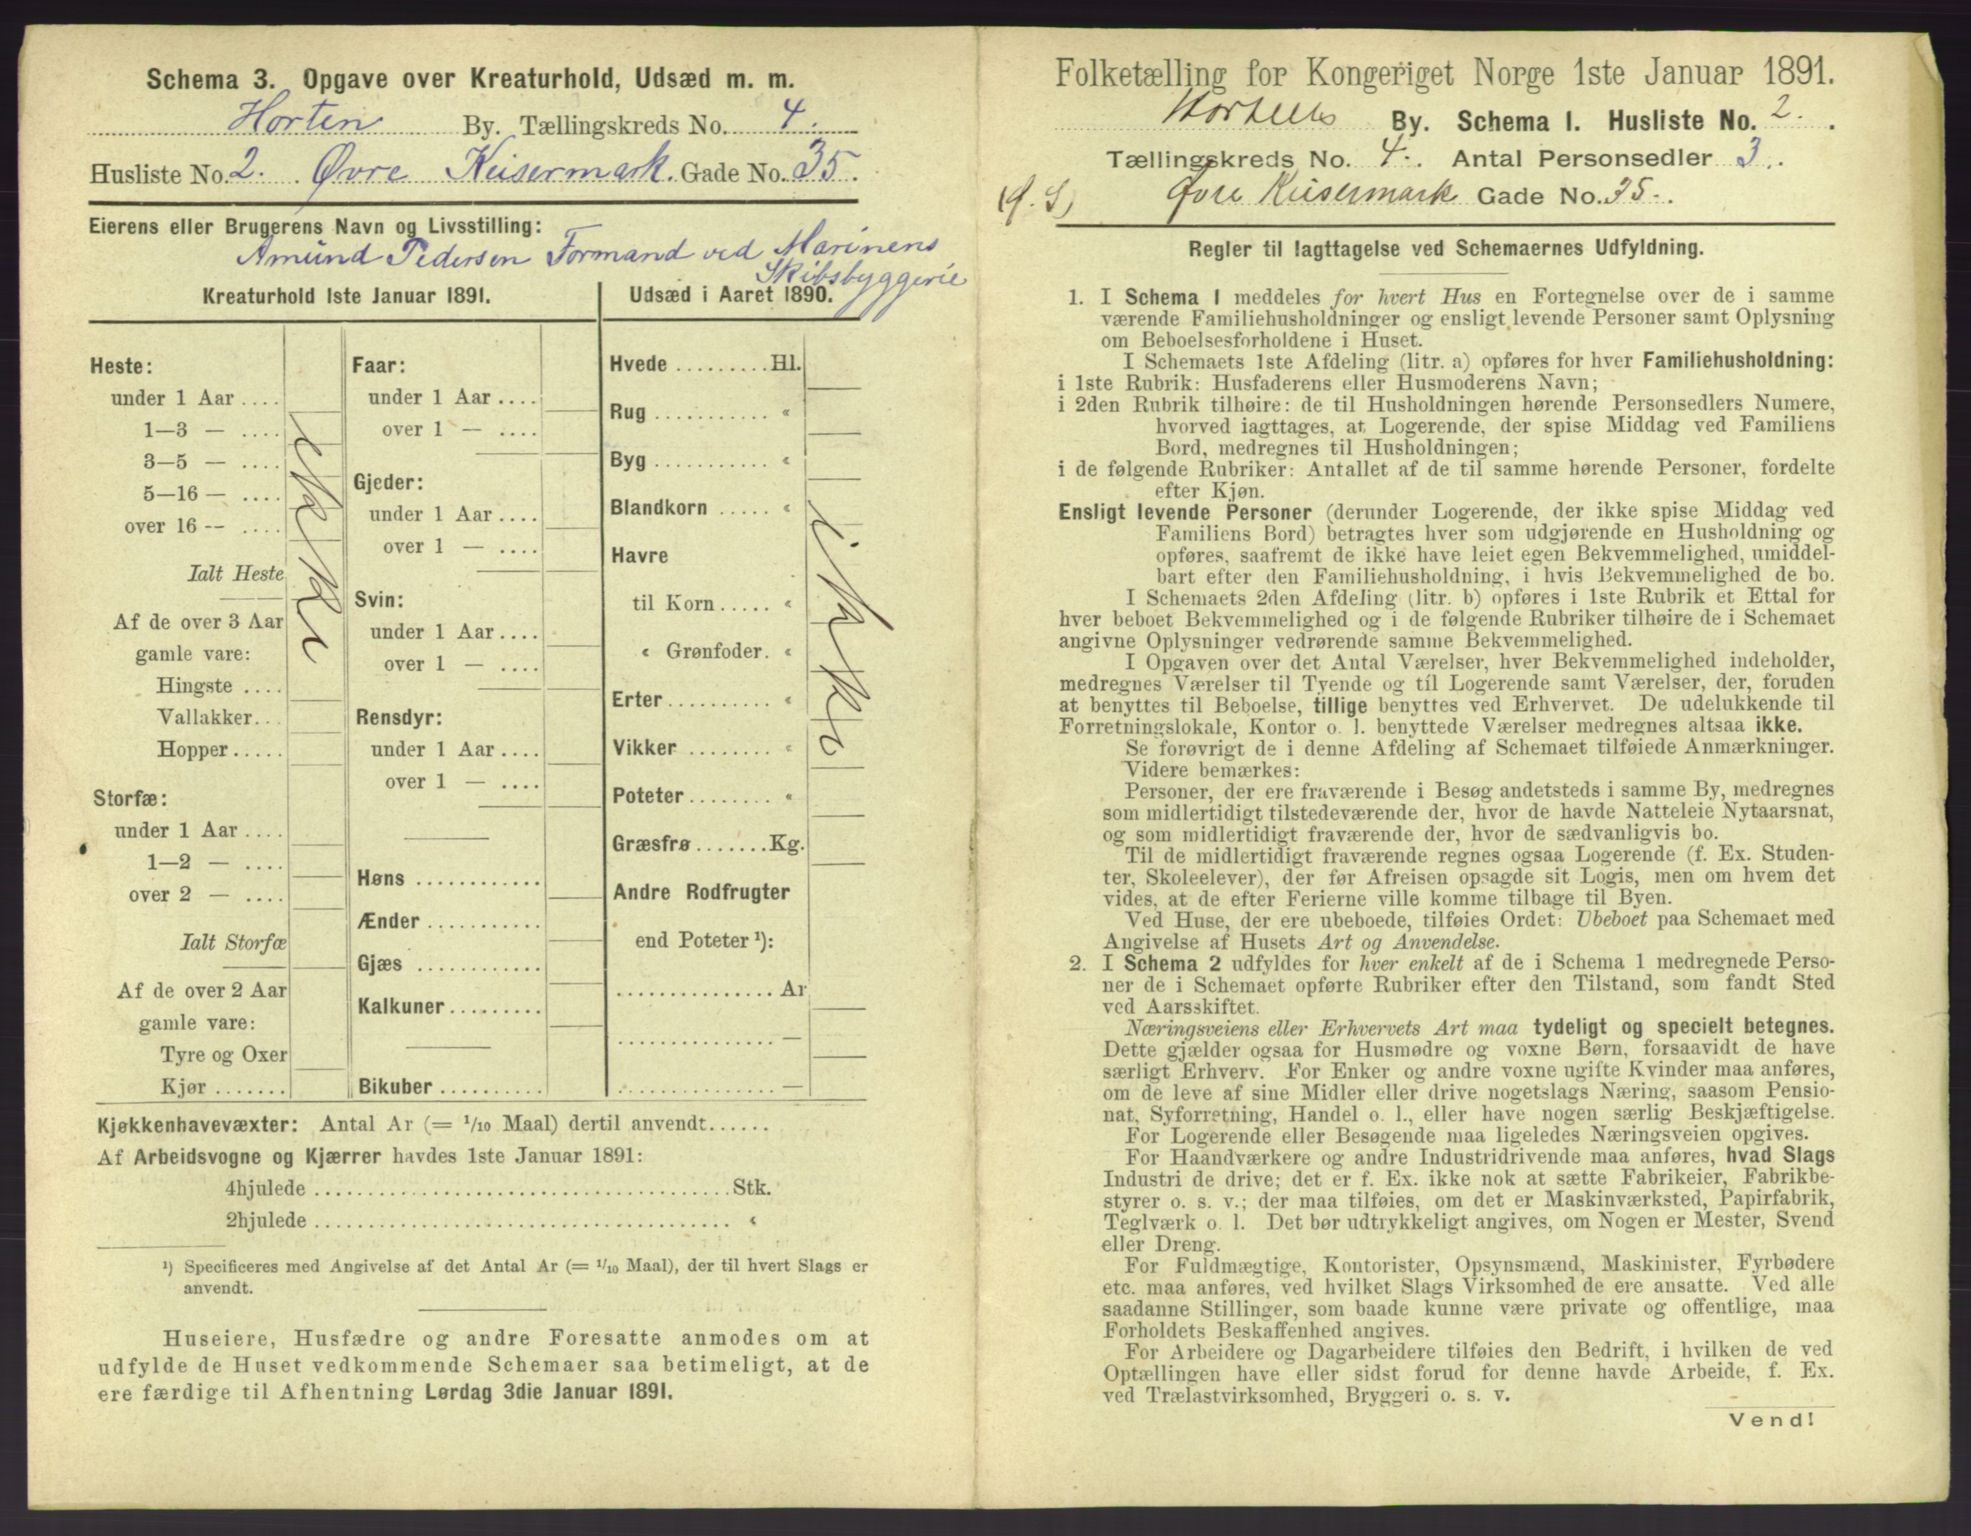 Schema 3. Opgave over Kreaturhold, Udsæd m. m.
Horten By. Tællingskreds No. 4.
Husliste No. 2. Øvre Keisermark. Gade No. 35.
Eierens eller Brugerens Navn og Livsstilling:
Amund Pedersen Formand ved Marinens
Skibsbyggerie
Kreaturhold 1ste Januar 1891.
Heste:
under 1 Aar ....
1—3 — ....
3—5 — ....
5—16 — ....
over 16 -- ....
Ialt Heste
Af de over 3 Aar
gamle vare:
Hingste ....
Vallakker...
Hopper .....
Storfæ:
under 1 Aar ....
1—2 — ....
over 2 — ....
Ialt Storfæ
Af de over 2 Aar
gamle vare:
Tyre og Oxer
Kjør .......
Ikke
Faar:
under 1 Aar ....
over 1 — ....
Gjeder:
under 1 Aar ....
over 1 — ....
Svin:
under 1 Aar ....
over 1 — ....
Rensdyr:
under 1 Aar ....
over 1 — ....
Høns ............
Ænder ...........
Gjæs ............
Kalkuner .........
Bikuber ..........
Udsæd i Aaret 1890.
Hvede ......... Hl.
Rug ........... «
Byg ........... «
Blandkorn ..... «
Havre
til Korn ..... «
« Grønfoder. «
Erter .......... «
Vikker ........ «
Poteter ........ «
Græsfrø ....... Kg.
Andre Rodfrugter
end Poteter ¹):
............... Ar
............... —
............... —
Kjøkkenhavevæxter: Antal Ar (= 1/10 Maal) dertil anvendt......
Af Arbeidsvogne og Kjærrer havdes 1ste Januar 1891:
4hjulede ....................................... Stk.
2hjulede ....................................... «
¹) Specificeres med Angivelse af det Antal Ar (= 1/10 Maal), der til hvert Slags er
anvendt.
Huseiere, Husfædre og andre Foresatte anmodes om at
udfylde de Huset vedkommende Schemaer saa betimeligt, at de
ere færdige til Afhentning Lørdag 3die Januar 1891.
Folketælling for Kongeriget Norge 1ste Januar 1891.
Hortens By. Schema I. Husliste No. 2.
Tællingskreds No. 4. Antal Personsedler 3.
Øvre Keisermark Gade No. 35.
Regler til Iagttagelse ved Schemaernes Udfyldning.
1. I Schema 1 meddeles for hvert Hus en Fortegnelse over de i samme
værende Familiehusholdninger og ensligt levende Personer samt Oplysning
om Beboelsesforholdene i Huset.
I Schemaets 1ste Afdeling (litr. a) opføres for hver Familiehusholdning:
i 1ste Rubrik: Husfaderens eller Husmoderens Navn;
i 2den Rubrik tilhøire: de til Husholdningen hørende Personsedlers Numere,
hvorved iagttages, at Logerende, der spise Middag ved Familiens
Bord, medregnes til Husholdningen;
i de følgende Rubriker: Antallet af de til samme hørende Personer, fordelte
efter Kjøn.
Ensligt levende Personer (derunder Logerende, der ikke spise Middag ved
Familiens Bord) betragtes hver som udgjørende en Husholdning og
opføres, saafremt de ikke have leiet egen Bekvemmelighed, umiddel-
bart efter den Familiehusholdning, i hvis Bekvemmelighed de bo.
I Schemaets 2den Afdeling (litr. b) opføres i 1ste Rubrik et Ettal for
hver beboet Bekvemmelighed og i de følgende Rubriker tilhøire de i Schemaet
angivne Oplysninger vedrørende samme Bekvemmelighed.
I Opgaven over det Antal Værelser, hver Bekvemmelighed indeholder,
medregnes Værelser til Tyende og til Logerende samt Værelser, der, foruden
at benyttes til Beboelse, tillige benyttes ved Erhvervet. De udelukkende til
Forretningslokale, Kontor o. l. benyttede Værelser medregnes altsaa ikke.
Se forøvrigt de i denne Afdeling af Schemaet tilføiede Anmærkninger.
Videre bemærkes:
Personer, der ere fraværende i Besøg andetsteds i samme By, medregnes
som midlertidigt tilstedeværende der, hvor de havde Natteleie Nytaarsnat,
og som midlertidigt fraværende der, hvor de sædvanligvis bo.
Til de midlertidigt fraværende regnes ogsaa Logerende (f. Ex. Studen-
ter, Skoleelever), der før Afreisen opsagde sit Logis, men om hvem det
vides, at de efter Ferierne ville komme tilbage til Byen.
Ved Huse, der ere ubeboede, tilføies Ordet: Ubeboet paa Schemaet med
Angivelse af Husets Art og Anvendelse.
2. I Schema 2 udfyldes for hver enkelt af de i Schema 1 medregnede Perso-
ner de i Schemaet opførte Rubriker efter den Tilstand, som fandt Sted
ved Aarsskiftet.
Næringsveiens eller Erhvervets Art maa tydeligt og specielt betegnes.
Dette gjælder ogsaa for Husmødre og voxne Børn, forsaavidt de have
særligt Erhverv. For Enker og andre voxne ugifte Kvinder maa anføres,
om de leve af sine Midler eller drive nogetslags Næring, saasom Pensio-
nat, Syforretning, Handel o. l., eller have nogen særlig Beskjæftigelse.
For Logerende eller Besøgende maa ligeledes Næringsveien opgives.
For Haandværkere og andre Industridrivende maa anføres, hvad Slags
Industri de drive; det er f. Ex. ikke nok at sætte Fabrikeier, Fabrikbe-
styrer o. s. v.; der maa tilføies, om det er Maskinværksted, Papirfabrik,
Teglværk o. l. Det bør udtrykkeligt angives, om Nogen er Mester, Svend
eller Dreng.
For Fuldmægtige, Kontorister, Opsynsmænd, Maskinister, Fyrbødere
etc. maa anføres, ved hvilket Slags Virksomhed de ere ansatte. Ved alle
saadanne Stillinger, som baade kunne være private og offentlige, maa
Forholdets Beskaffenhed angives.
For Arbeidere og Dagarbeidere tilføies den Bedrift, i hvilken de ved
Optællingen have eller sidst forud for denne havde Arbeide, f. Ex.
ved Trælastvirksomhed, Bryggeri o. s. v.
Vend!